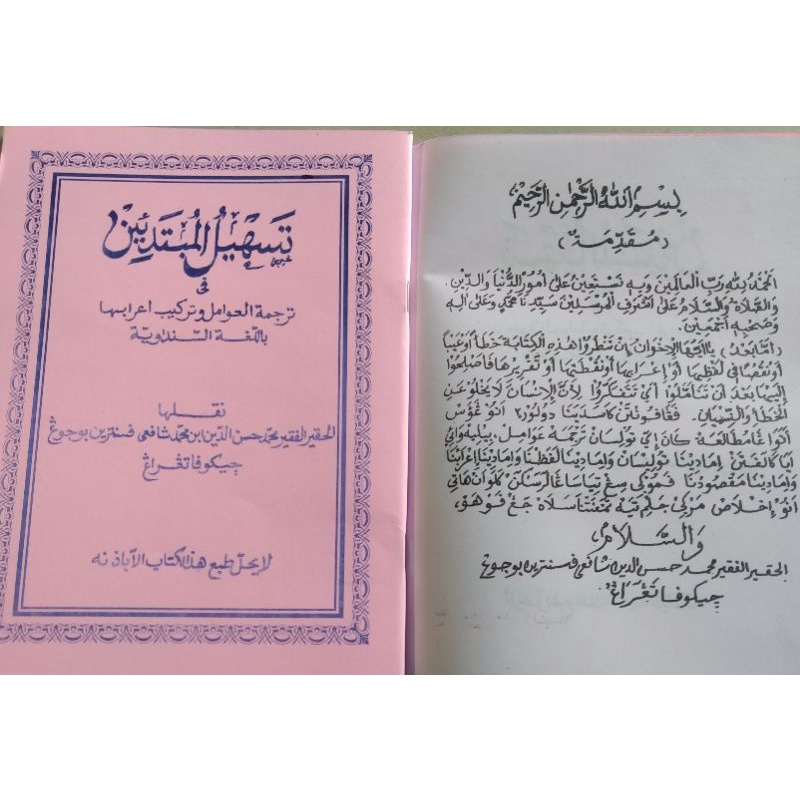 تسهيل المبتدئين
في
ترجمة العوامل وتركيب اعرابها
باللغة السنداوية
نقلها
الحقير الفقير محمد حسن الدين ابن محمد شافعي فسنترين بوجوڠ
چيكوفا تڠراڠ
لايحل طبع هذا الكتاب الاباذنه
بِسْمِ اللهِ الرَّحْمٰنِ الرَّحِيْمِ
(مُقَدِّمَةٌ)
اَلْحَمْدُ لِلّٰهِ رَبِّ الْعَالَمِيْنَ وَبِهِ نَسْتَعِيْنُ عَلَى اُمُوْرِ الدُّنْيَا وَالدِّيْنِ.
وَالصَّلَاةُ وَالسَّلَامُ عَلَى اَشْرَفِ الْمُرْسَلِيْنَ سَيِّدِنَا مُحَمَّدٍ وَعَلَى اٰلِهِ
وَصَحْبِهِ اَجْمَعِيْنَ.
(اَمَّا بَعْدُ) يَا اَيُّهَا الْاِخْوَانُ اِنْ تَنْظُرُوْا هٰذِهِ الْكِتَابَةَ خَطَأً اَوْ عَيْبًا
اَوْ نَقْصًا فِي لَفْظِهَا اَوْ اِعْرَابِهَا اَوْ نُقْطَتِهَا اَوْ تَقْرِيْرِهَا فَاصْلِحُوْا
اِلَيْهَا بَعْدَ اَنْ تَتَأَمَّلُوْا اَيْ تَتَفَكَّرُوْا لِاَنَّ الْاِنْسَانَ لَا يَخْلُوْ عَنِ
الْخَطَأِ وَالنِّسْيَانِ. دولور٢ انو
انو مطالعة كان اي توليسان ترجمه عوامل،
توليسان وامادينا لفظنا وامادينا اعرابنا
وامادينا مقصودنا
انو اخلاص
وَالسَّلَامُ
الحقير الفقير محمد حسن الدين شافعي فسنترين بوجوڠ
چيكوفا تڠراڠ